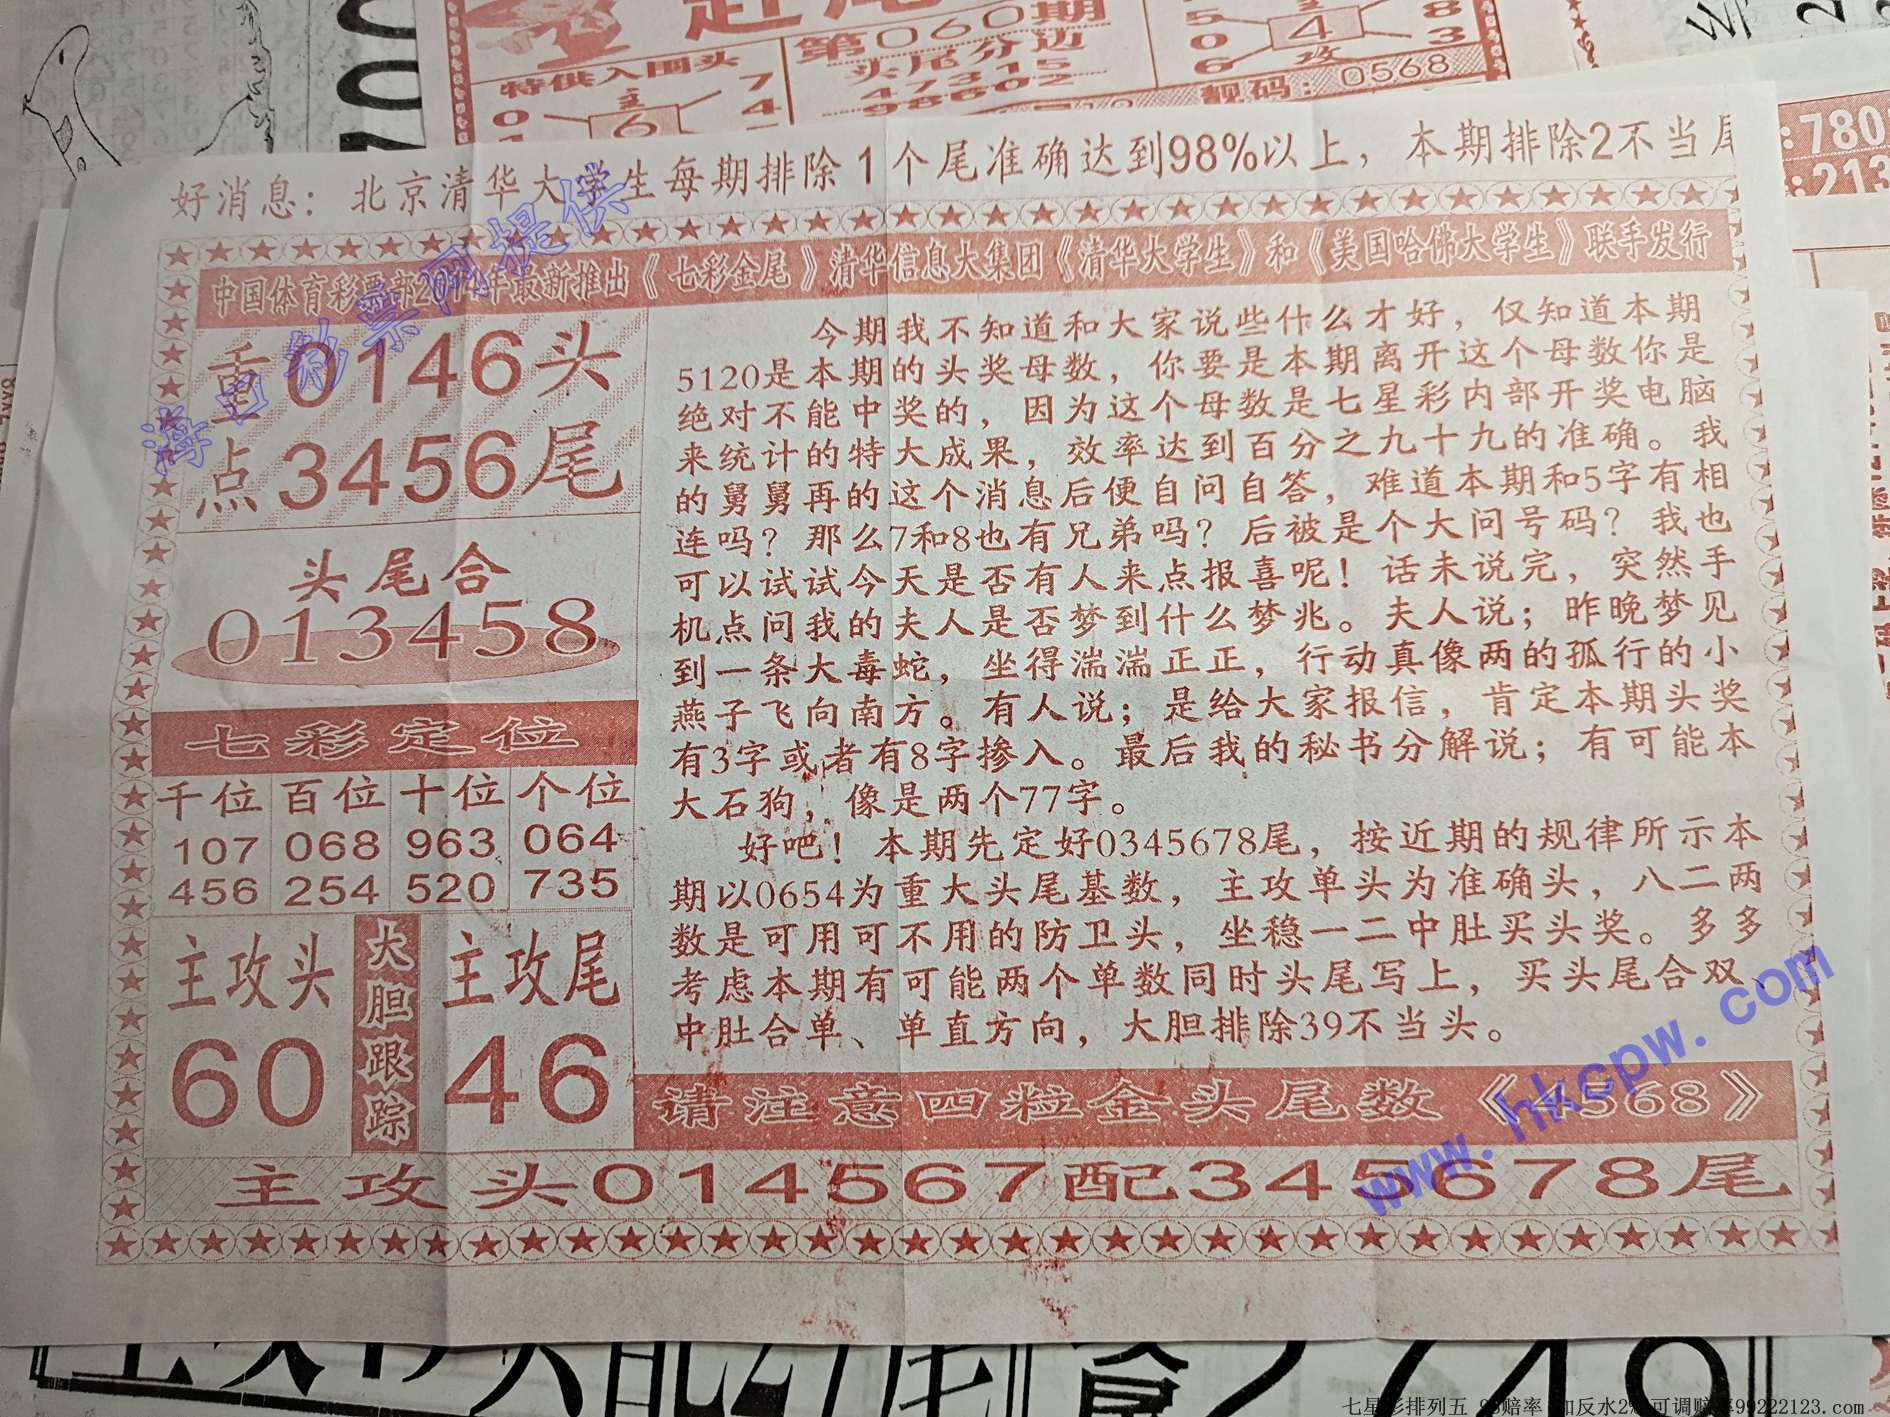 赶尾
第060期
特供入围头
主
0
7
6
4
头尾分边
47315
98602
5
8
0
4
3
6
攻
靓码：0568
780
213
好消息：北京清华大学生每期排除1个尾准确达到98%以上，本期排除2不当尾
中国体育彩票部2 年最新推出《七彩金尾》清华信息大集团《清华大学生》和《美国哈佛大学生》联手发行
重0146头
点3456尾
头尾合
013458
七彩定位
千位 百位 十位 个位
107 068 963 064
456 254 520 735
主攻头
60
大胆跟踪
主攻尾
46
今期我不知道和大家说些什么才好，仅知道本期
5120是本期的头奖母数，你要是本期离开这个母数你是
绝对不能中奖的，因为这个母数是七星彩内部开奖电脑
来统计的特大成果，效率达到百分之九十九的准确。我
的舅舅再的这个消息后便自问自答，难道本期和5字有相
连吗？那么7和8也有兄弟吗？后被是个大问号码？我也
可以试试今天是否有人来点报喜呢！话未说完，突然手
机点问我的夫人是否梦到什么梦兆。夫人说；昨晚梦见
到一条大毒蛇，坐得湍湍正正，行动真像两的孤行的小
燕子飞向南方。有人说；是给大家报信，肯定本期头奖
有3字或者有8字掺入。最后我的秘书分解说；有可能本
大石狗，像是两个77字。
好吧！本期先定好0345678尾，按近期的规律所示本
期以0654为重大头尾基数，主攻单头为准确头，八二两
数是可用可不用的防卫头，坐稳一二中肚买头奖。多多
考虑本期有可能两个单数同时头尾写上，买头尾合双、
中肚合单、单直方向，大胆排除39不当头。
请注意四粒金头尾数《4568》
主攻头014567配345678尾
海口彩票网提供
www.hkcpw.com
2749
七星彩排列五 98赔率 加反水2% 可调赔率99222123.com